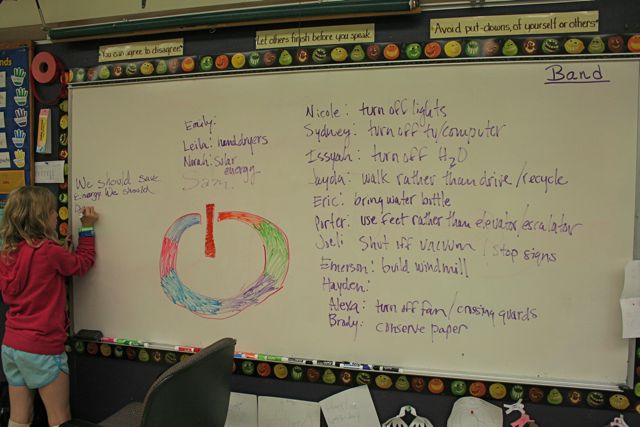 You can agree to disagree
Let others finish before you speak
Avoid put-downs, of yourself or others
Band
We should save
Energy. We should
Emily:
Leila: hand dryers
Norah: Solar
energy
Sam:
Nicole: turn off lights
Sydney: turn off tv/computer
Issyah: turn off H2O
Jayda: walk rather than drive/recycle
Eric: bring water bottle
Porter: use feet rather than elevator/escalator
Joeli: Shut off vacuum / Stop signs
Emerson: build windmill
Hayden:
Alexa: turn off fan/crossing guards
Brady: conserve paper